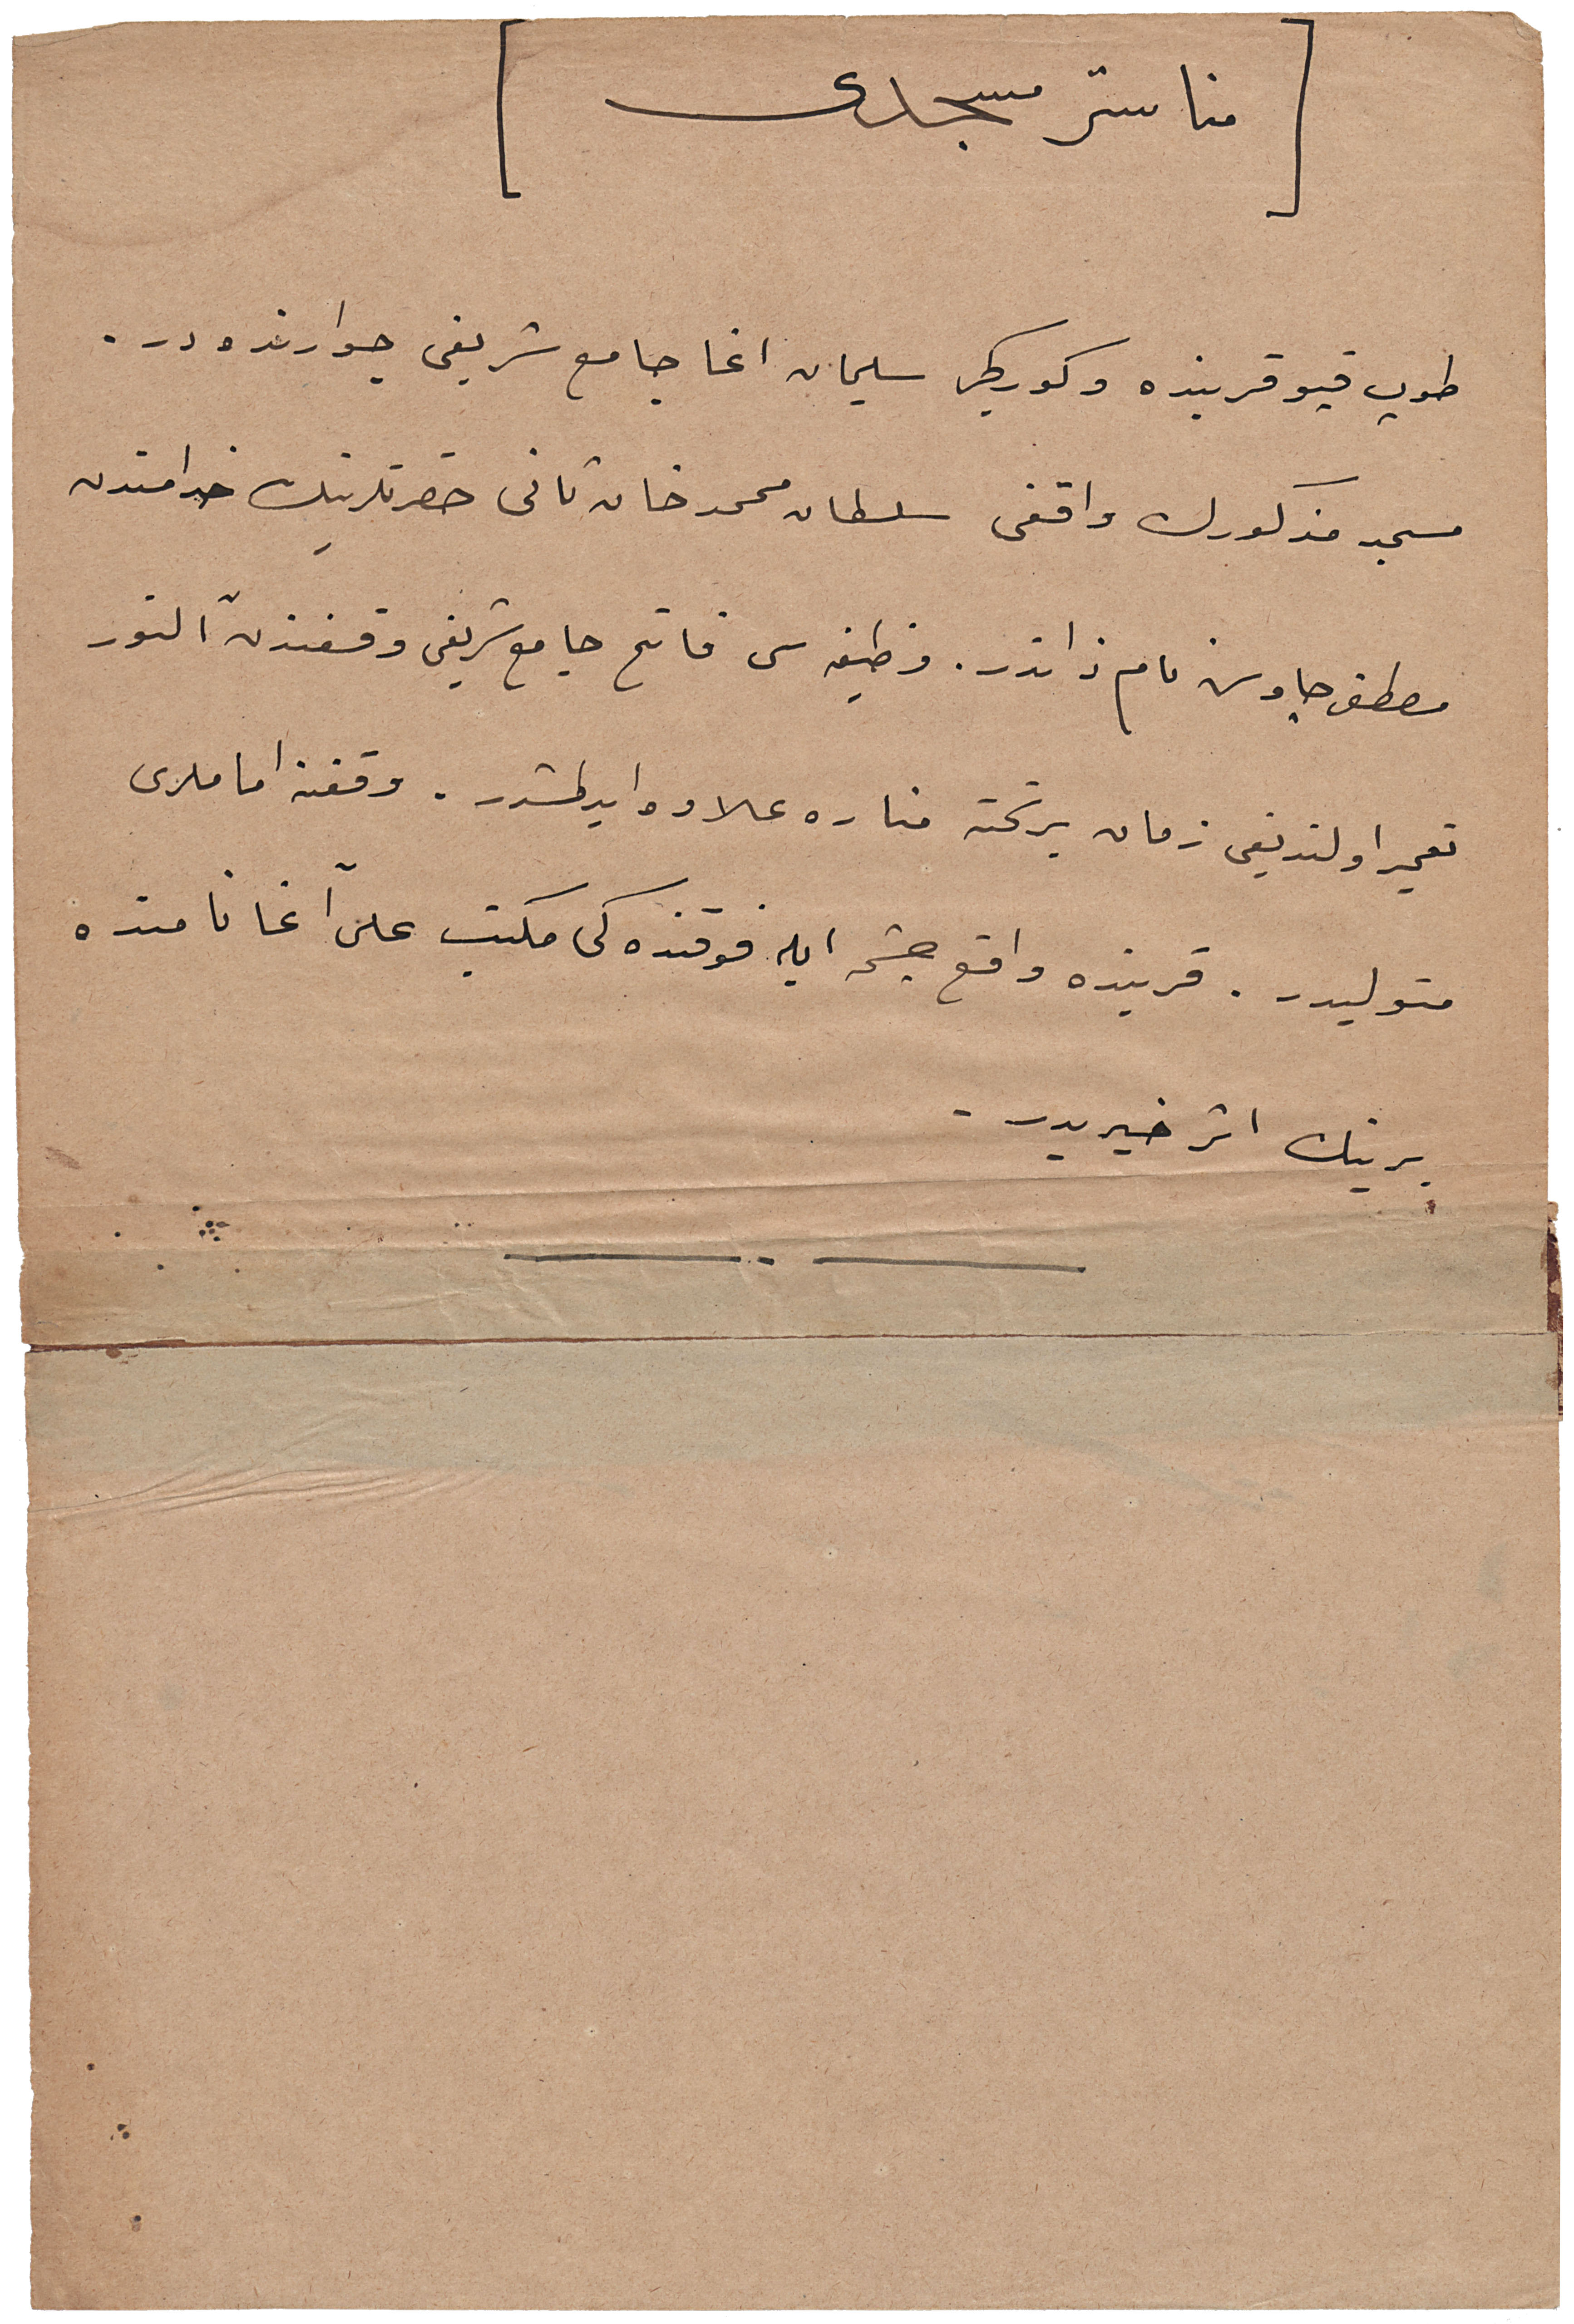 [ مناستر مسجدی ]
طوپ قپو قربنده و كوركجی سلیمان اغا جامع شریفی جوارنده در .
مسجد مذكورك واقفی سلطان محمد خان ثانی حضرتلرینك خدامندن
مصطفی چاوش نام ذاتدر . وظیفه سی فاتح جامع شریفی وقفندن آلنور
تعمیر اولندیغی زمان بر تخته مناره علاوه ایدلمشدر . وقفنه اماملری
متولیدر . قربنده واقع چشمه ایله فوقنده كی مكتب علی آغا نامنده
برینك اثر خیریدر .